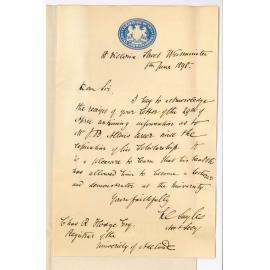 Victoria Street Westminster
June 1895.
Dear Sir,
I beg to acknowledge
the receipt of your letter of the 29th
information as to
Mr J B Allen's career since the
expiration of his Scholarship. It
is a pleasure to learn that his health
has allowed him to become a lecturer
and demonstrator at the University
Yours faithfully
Chas R Hodge Esq.
Registrar of the
University of Adelaide